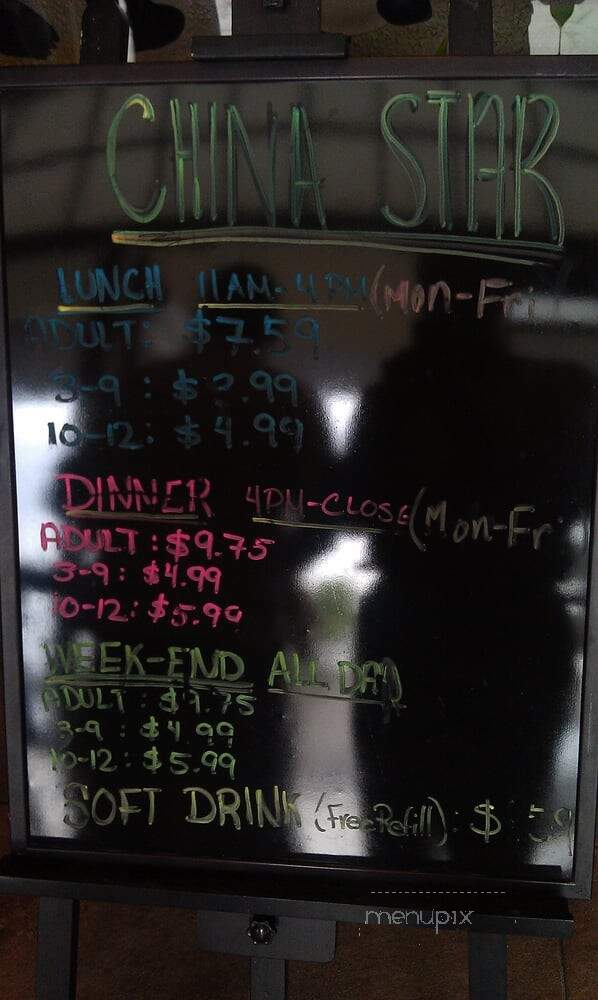 CHINA STAR
LUNCH 11AM-4PM (Mon-Fri
ADULT: $7.59
3-9 : $ .99
10-12: $4.99
DINNER 4PM-CLOSE (Mon-Fr
ADULT : $9.75
3-9 : $4.99
10-12: $5.99
WEEK-END ALL DAY
ADULT : $9.75
3-9 : $4.99
10-12: $5.99
SOFT DRINK (Free Refill): $ .59
menupix